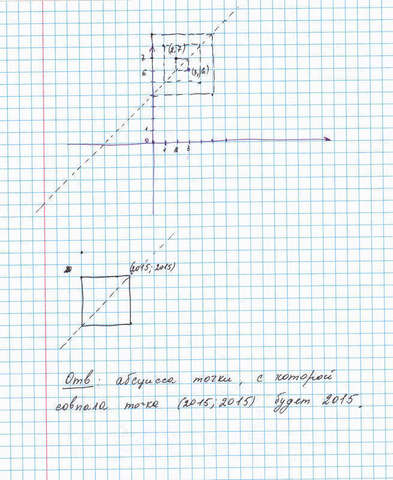 (2;7)
7
6
(3;6)
1
0
1 2 3
(2015; 2015)
Отв: абсцисса точки, с которой
совпала точка (2015; 2015) будет 2015.